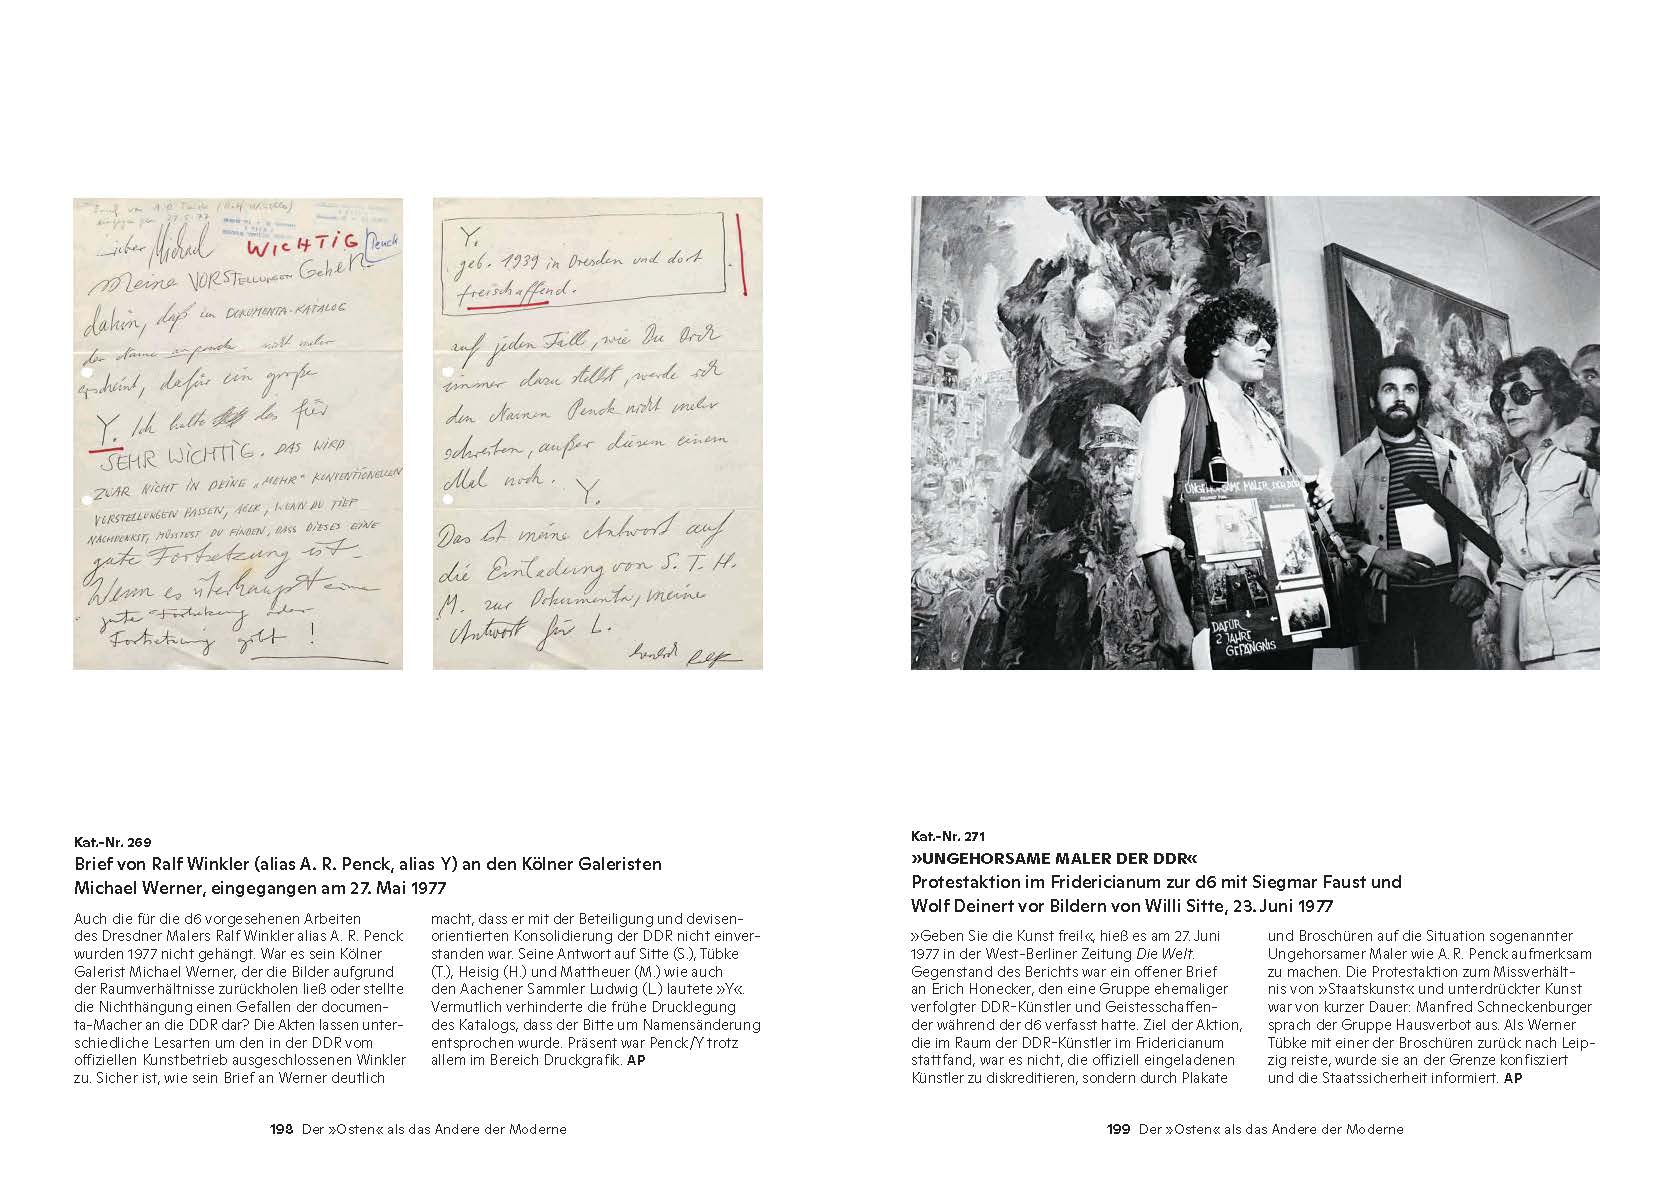 Brief von A. R. Penck (Ralf Winkler)
eingegangen 27.5.77
Lieber Michael
WICHTIG
Penck
Meine VORSTELLUNGEN GEHEN
dahin, daß im DOKUMENTA-KATALOG
der Name a.r. penck nicht mehr
erscheint, dafür ein große
Y. Ich halte das für
SEHR WICHTIG. DAS WIRD
ZWAR NICHT IN DEINE „MEHR“ KONVENTIONELLEN
VORSTELLUNGEN PASSEN, ABER, WENN DU TIEF
NACHDENKST, MÜSSTEST DU FINDEN, DASS DIESES EINE
gute Fortsetzung ist.
Wenn es überhaupt eine
gute Fortsetzung oder
Fortsetzung gibt!
Y.
geb. 1939 in Dresden und dort
freischaffend.
auf jeden Fall, wie Du Dich
immer dazu stellst, werde ich
den Namen Penck nicht mehr
schreiben, außer diesem einem
Mal noch. Y.
Das ist meine Antwort auf
die Einladung von S. T. H.
M. zur Dokumenta, meine
Antwort für L.
herzlich Ralf
UNGEHORSAME MALER DER DDR
DAFÜR
2 JAHRE
GEFÄNGNIS
Kat.-Nr. 269
Brief von Ralf Winkler (alias A. R. Penck, alias Y) an den Kölner Galeristen
Michael Werner, eingegangen am 27. Mai 1977
Auch die für die d6 vorgesehenen Arbeiten
des Dresdner Malers Ralf Winkler alias A. R. Penck
wurden 1977 nicht gehängt. War es sein Kölner
Galerist Michael Werner, der die Bilder aufgrund
der Raumverhältnisse zurückholen ließ oder stellte
die Nichthängung einen Gefallen der documen-
ta-Macher an die DDR dar? Die Akten lassen unter-
schiedliche Lesarten um den in der DDR vom
offiziellen Kunstbetrieb ausgeschlossenen Winkler
zu. Sicher ist, wie sein Brief an Werner deutlich
macht, dass er mit der Beteiligung und devisen-
orientierten Konsolidierung der DDR nicht einver-
standen war. Seine Antwort auf Sitte (S.), Tübke
(T.), Heisig (H.) und Mattheuer (M.) wie auch
den Aachener Sammler Ludwig (L.) lautete »Y«.
Vermutlich verhinderte die frühe Drucklegung
des Katalogs, dass der Bitte um Namensänderung
entsprochen wurde. Präsent war Penck/Y trotz
allem im Bereich Druckgrafik. AP
198 Der »Osten« als das Andere der Moderne
Kat.-Nr. 271
»UNGEHORSAME MALER DER DDR«
Protestaktion im Fridericianum zur d6 mit Siegmar Faust und
Wolf Deinert vor Bildern von Willi Sitte, 23. Juni 1977
»Geben Sie die Kunst frei!«, hieß es am 27. Juni
1977 in der West-Berliner Zeitung Die Welt.
Gegenstand des Berichts war ein offener Brief
an Erich Honecker, den eine Gruppe ehemaliger
verfolgter DDR-Künstler und Geistesschaffen-
der während der d6 verfasst hatte. Ziel der Aktion,
die im Raum der DDR-Künstler im Fridericianum
stattfand, war es nicht, die offiziell eingeladenen
Künstler zu diskreditieren, sondern durch Plakate
und Broschüren auf die Situation sogenannter
Ungehorsamer Maler wie A. R. Penck aufmerksam
zu machen. Die Protestaktion zum Missverhält-
nis von »Staatskunst« und unterdrückter Kunst
war von kurzer Dauer: Manfred Schneckenburger
sprach der Gruppe Hausverbot aus. Als Werner
Tübke mit einer der Broschüren zurück nach Leip-
zig reiste, wurde sie an der Grenze konfisziert
und die Staatssicherheit informiert. AP
199 Der »Osten« als das Andere der Moderne